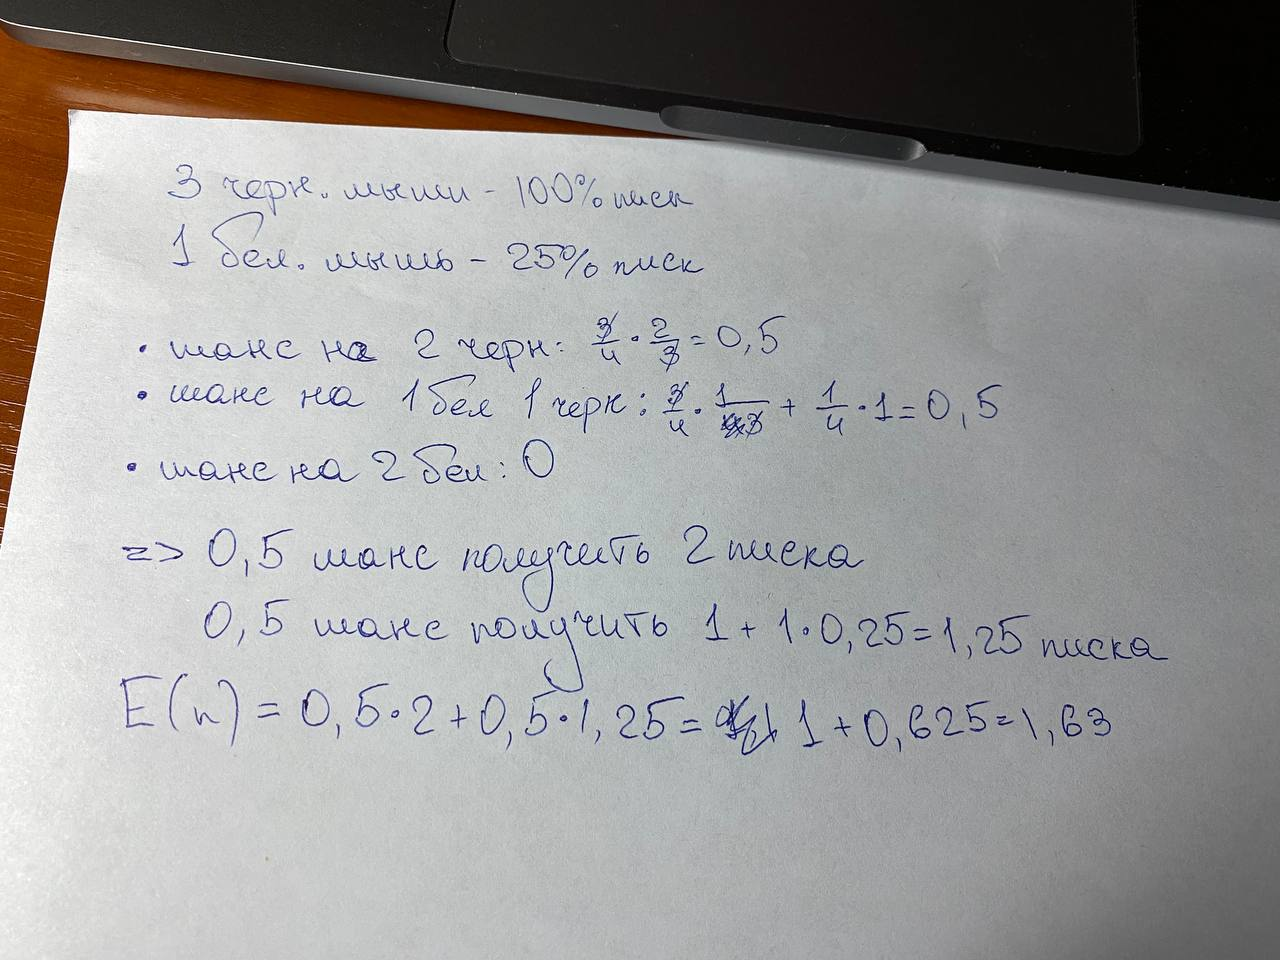 3 черн. мыши - 100% писк
1 бел. мышь - 25% писк
• шанс на 2 черн: 3/4 · 2/3 = 0,5
• шанс на 1 бел 1 черн: 3/4 · 1/3 + 1/4 · 1 = 0,5
• шанс на 2 бел: 0
=> 0,5 шанс получить 2 писка
0,5 шанс получить 1 + 1·0,25 = 1,25 писка
E(n) = 0,5·2 + 0,5·1,25 = 1 + 0,625 = 1,63